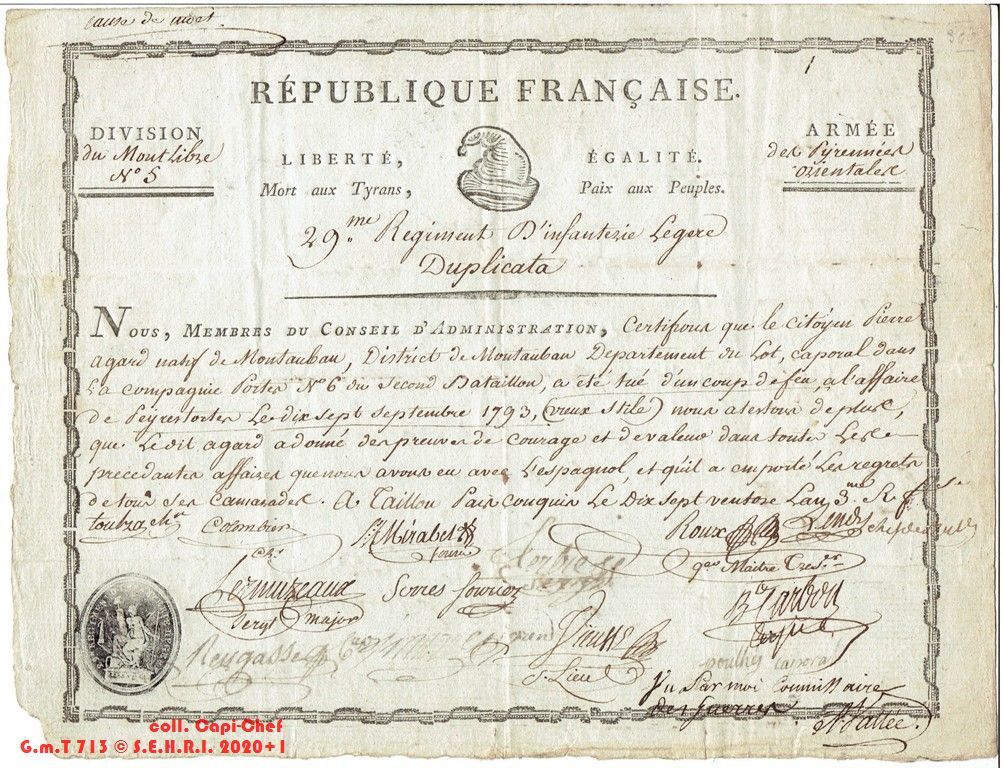 cause de mort.
RÉPUBLIQUE FRANÇAISE.
DIVISION
du Montlibre
N° 5
LIBERTÉ,
Mort aux Tyrans,
ÉGALITÉ.
Paix aux Peuples.
ARMÉE
des Pÿrennées
orientales
29.me Regiment D'infanterie Legere
Duplicata
NOUS, MEMBRES DU CONSEIL D'ADMINISTRATION, Certifions que le citoyen Pierre
agard natif de Montauban, District de Montauban Departement du Lot, caporal dans
La compagnie Portes N° 6 du second Bataillon, a eté tué d'un coup de feu a l'affaire
de Peyrestortes Le dix sept septembre 1793, (vieux stile) nous atestons de plus,
que Le dit agard a donné des preuves de courage et de valeur dans toutes Les
precedantes affaires que nous avons eu avec L'espagnol, et qu'il a emporté Les regrets
de tous ses camarades. A Taillon Pais conquis Le Dix sept ventose Lan 3.me R. fse
Colombier
Mirabel
fourier
Roux
qer Maitre Treser
Serres fourier
sergt major
Reygasse
s. Lieut
poulhes caporal
Vu Par moi Commissaire
Des guerres
coll. Capi-Chef
G.m.T 713 © S.E.H.R.I. 2020+1